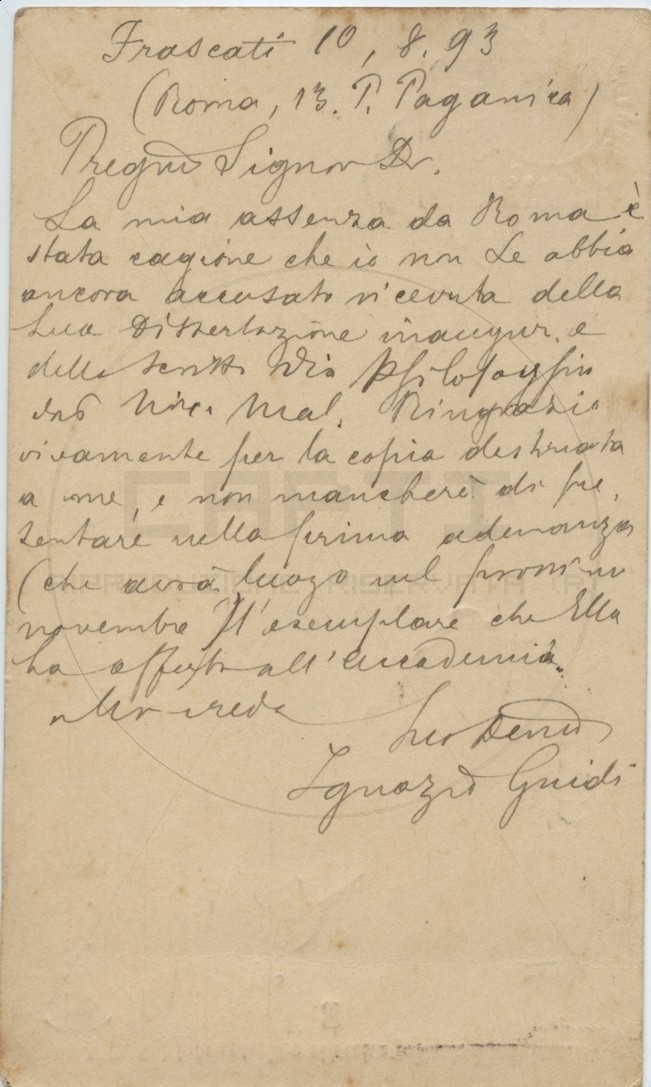 Frascati 10, 8. 93
(Roma, 13. P. Paganica)
Pregmo Signor Dr.
La mia assenza da Roma è
stata cagione che io non Le abbia
ancora accusato ricevuta della
Sua Dissertazione inaugur. e
dello scritto Die Philosophie
des Nic. Mal. Ringrazio
vivamente per la copia destinata
a me, e non mancherò di pre,
sentare nella prima adunanza
(che avrà luogo nel prossimo
novembre) l'esemplare che Ella
ha offerto all'Accademia.
Mi creda
Suo Devmo
Ignazio Guidi